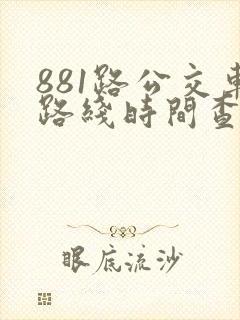 881路公交車
路綫時間查
眼底流沙